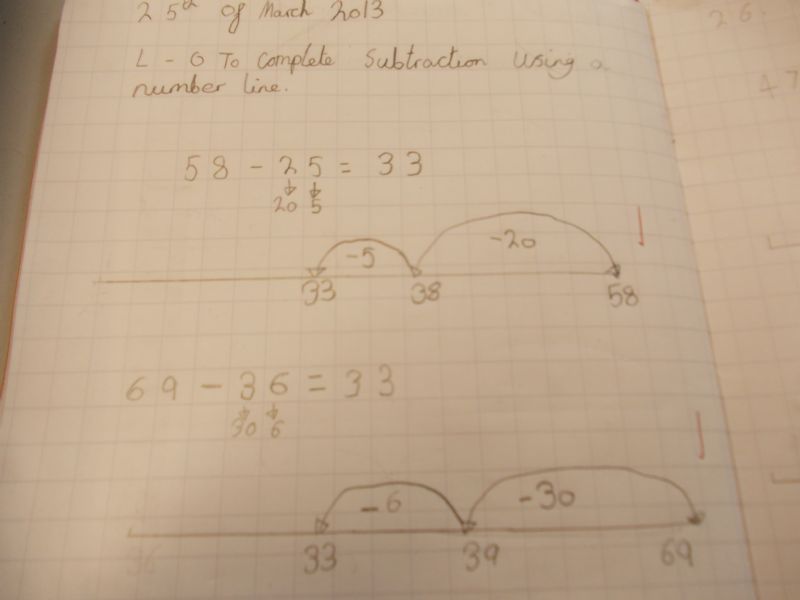 25th of March 2013
L-O To complete Subtraction Using a
number line.
58 - 25 = 33
20 5
-5 -20
33 38 58
69 - 36 = 33
30 6
-6 -30
36 33 39 69
26.
47